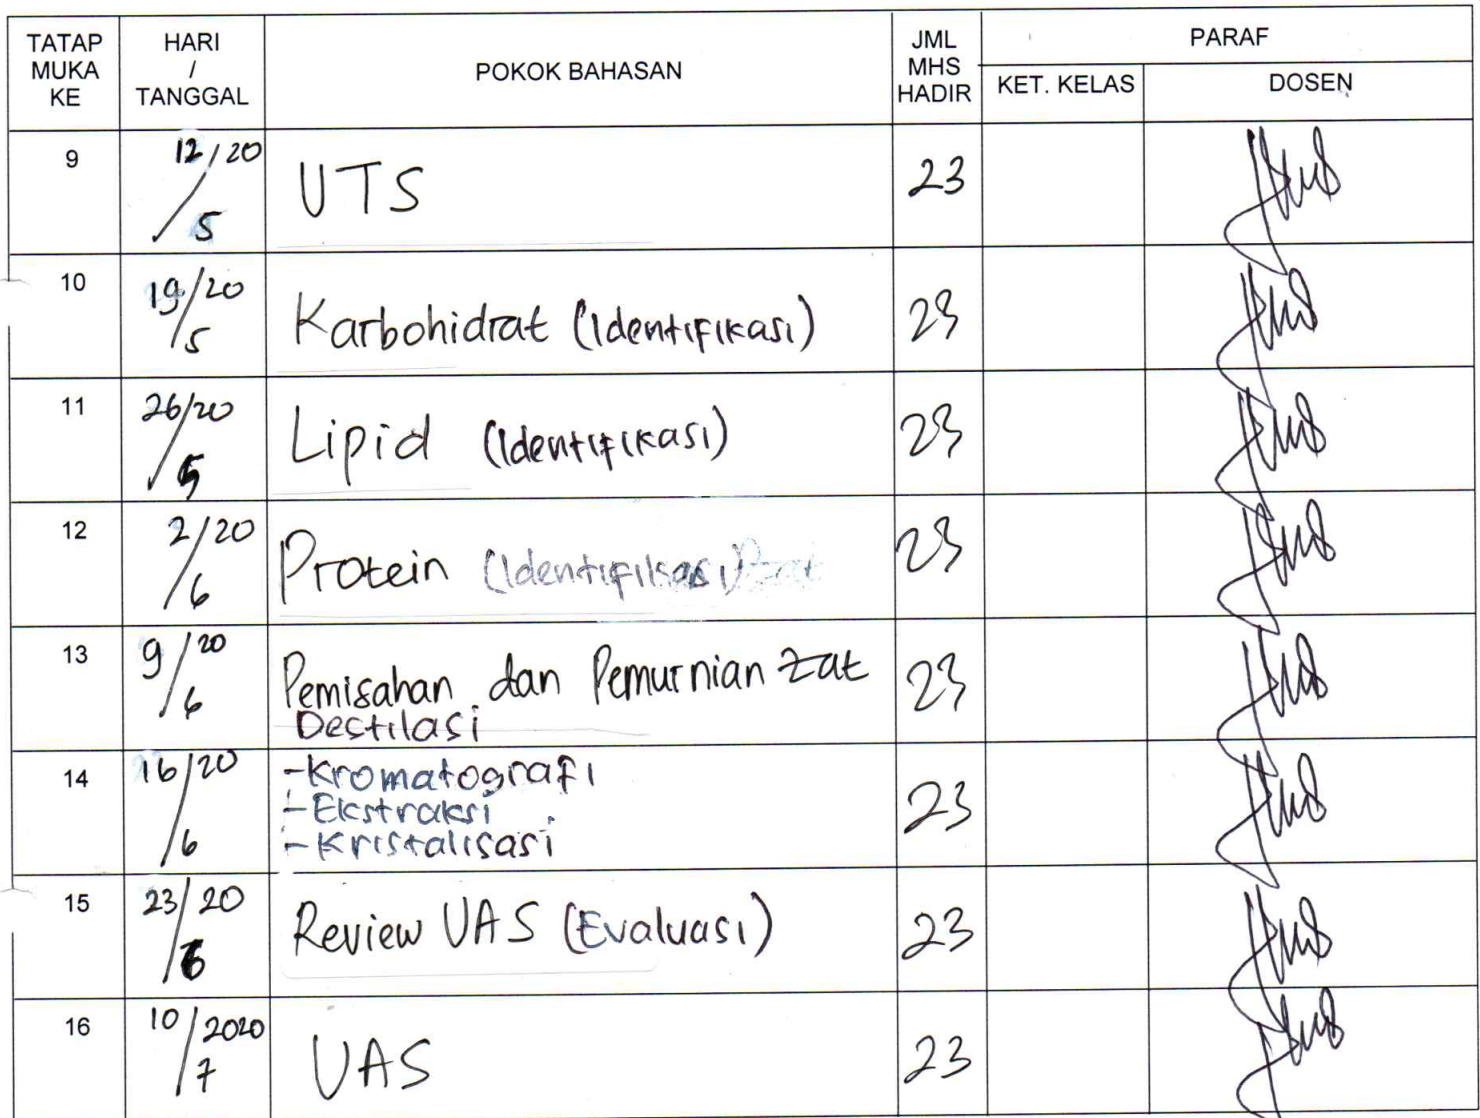 TATAP MUKA KE HARI / TANGGAL POKOK BAHASAN JML MHS HADIR PARAF
KET. KELAS DOSEN
9 12/20/5 UTS 23
10 19/20/5 Karbohidrat (Identifikasi) 23
11 26/20/5 Lipid (Identifikasi) 23
12 2/20/6 Protein (Identifikasi) 23
13 9/20/6 Pemisahan dan Pemurnian Zat 23
Destilasi
14 16/20/6 -Kromatografi 23
-Ekstraksi
-Kristalisasi
15 23/20/6 Review UAS (Evaluasi) 23
16 10/2020/7 UAS 23